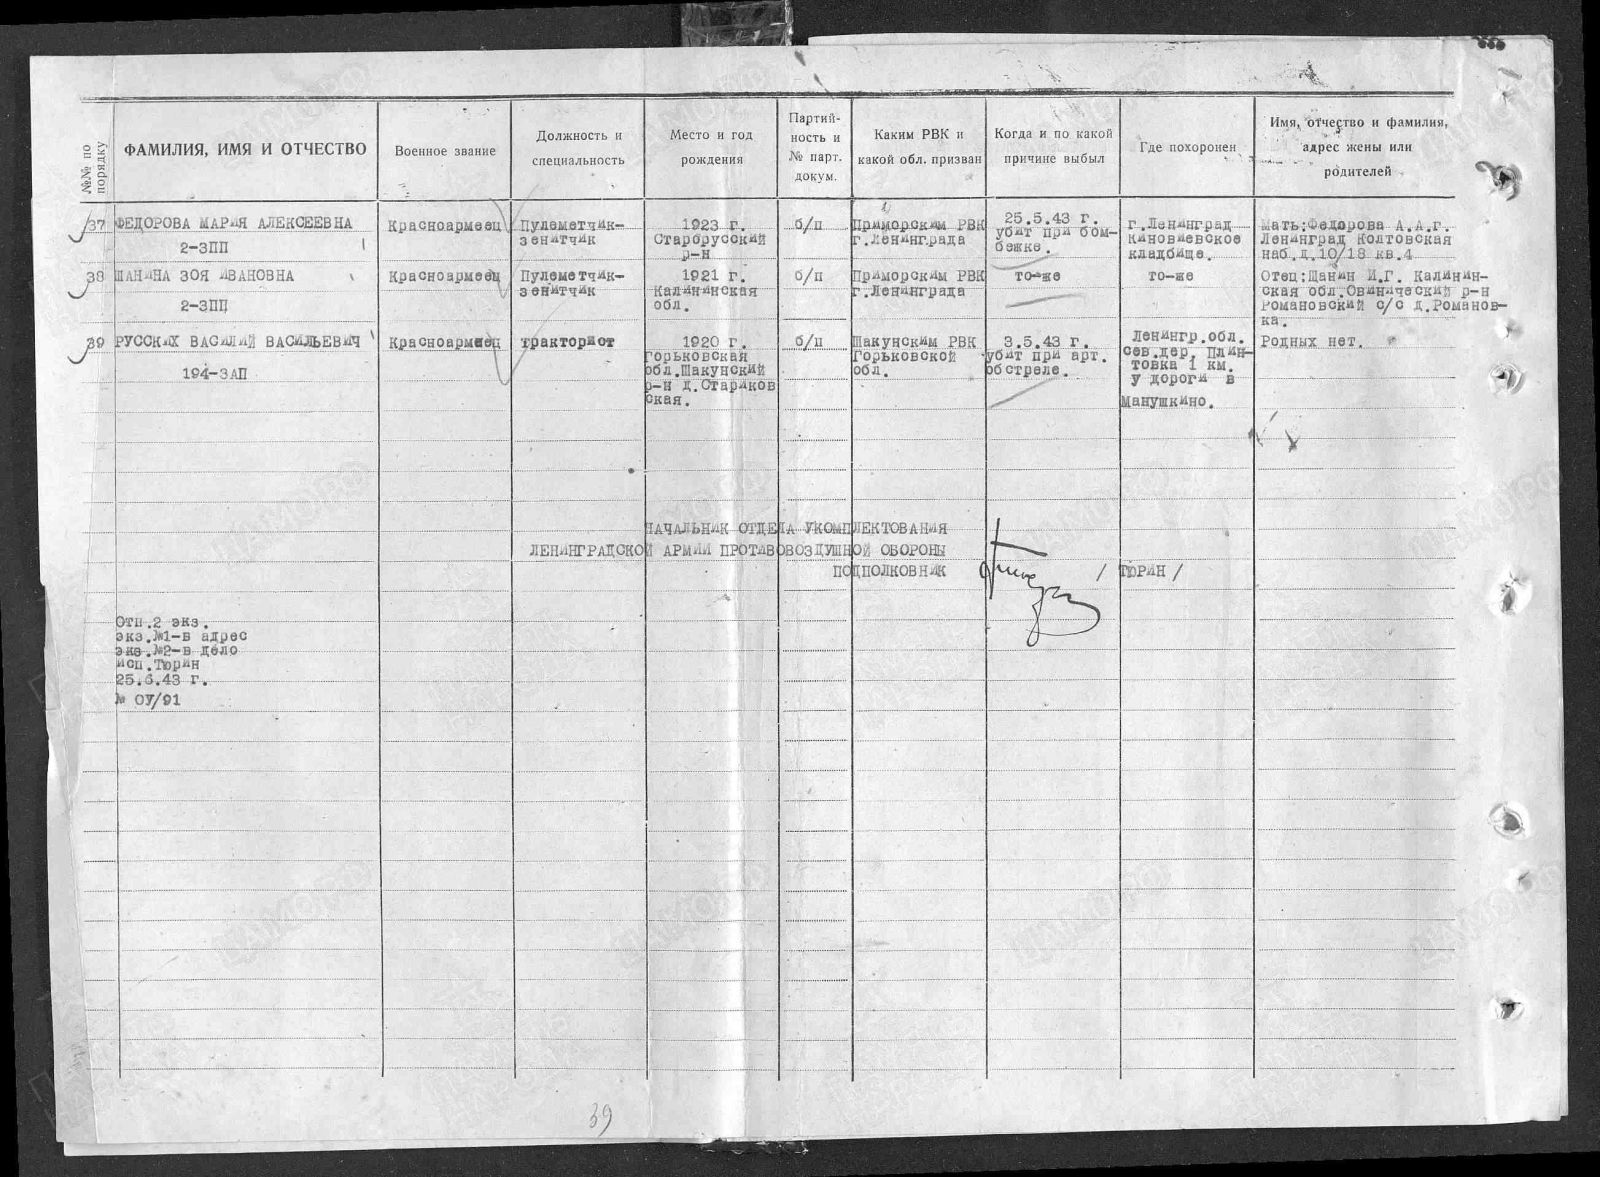 №№ по порядку
ФАМИЛИЯ, ИМЯ И ОТЧЕСТВО
Военное звание
Должность и специальность
Место и год рождения
Партий-
ность и
№ парт.
докум.
Каким РВК и
какой обл. призван
Когда и по какой
причине выбыл
Где похоронен
Имя, отчество и фамилия,
адрес жены или
родителей
37
ФЕДОРОВА МАРИЯ АЛЕКСЕЕВНА
2-ЗПП
Красноармеец
Пулеметчик-
зенитчик
1923 г.
Старорусский
р-н
б/п
Приморским РВК
г.Ленинграда
25.5.43 г.
убит при бом-
бежке.
г.Ленинград
Киновиевское
кладбище.
Мать:Федорова А.А.г.
Ленинград Колтовская
наб.д.10/18 кв.4
38
ШАНИНА ЗОЯ ИВАНОВНА
2-ЗПП
Красноармеец
Пулеметчик-
зенитчик
1921 г.
Калининская
обл.
б/п
Приморским РВК
г.Ленинграда
то-же
то-же
Отец:Шанин И.Г. Калинин-
ская обл.Овинический р-н
Романовский с/с д.Романов-
ка.
39
РУССКИХ ВАСИЛИЙ ВАСИЛЬЕВИЧ
194-ЗАП
Красноармеец
тракторист
1920 г.
Горьковская
обл.Шакунский
р-н д.Стариков
ская.
б/п
Шакунским РВК
Горьковской
обл.
3.5.43 г.
убит при арт.
обстреле.
Ленингр.обл.
сев.дер. Плин-
товка 1 км.
у дороги в
Манушкино.
Родных нет.
НАЧАЛЬНИК ОТДЕЛА УКОМПЛЕКТОВАНИЯ
ЛЕНИНГРАДСКОЙ АРМИИ ПРОТИВОВОЗДУШНОЙ ОБОРОНЫ
ПОДПОЛКОВНИК / ТЮРИН /
Отп.2 экз.
экз.№1-в адрес
экз.№2-в дело
исп.Тюрин
25.6.43 г.
№ ОУ/91
39